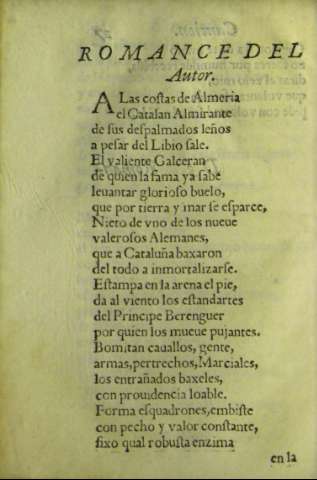 ROMANCE DEL
Autor.
A Las costas de Almeria
el Catalan Almirante
de sus despalmados leños
a pesar del Libio sale.
El valiente Galceran
de quien la fama ya sabe
leuantar glorioso buelo,
que por tierra y mar se esparce,
Nieto de vno de los nueue
valerosos Alemanes,
que a Cataluña baxaron
del todo a inmortalizarse.
Estampa en la arena el pie,
da al viento los estandartes
del Principe Berenguer
por quien los mueue pujantes.
Bomitan cauallos, gente,
armas, pertrechos, Marciales,
los entrañados baxeles,
con prouidencia loable.
Forma esquadrones, embiste
con pecho y valor constante,
fixo qual robusta enzima
en la